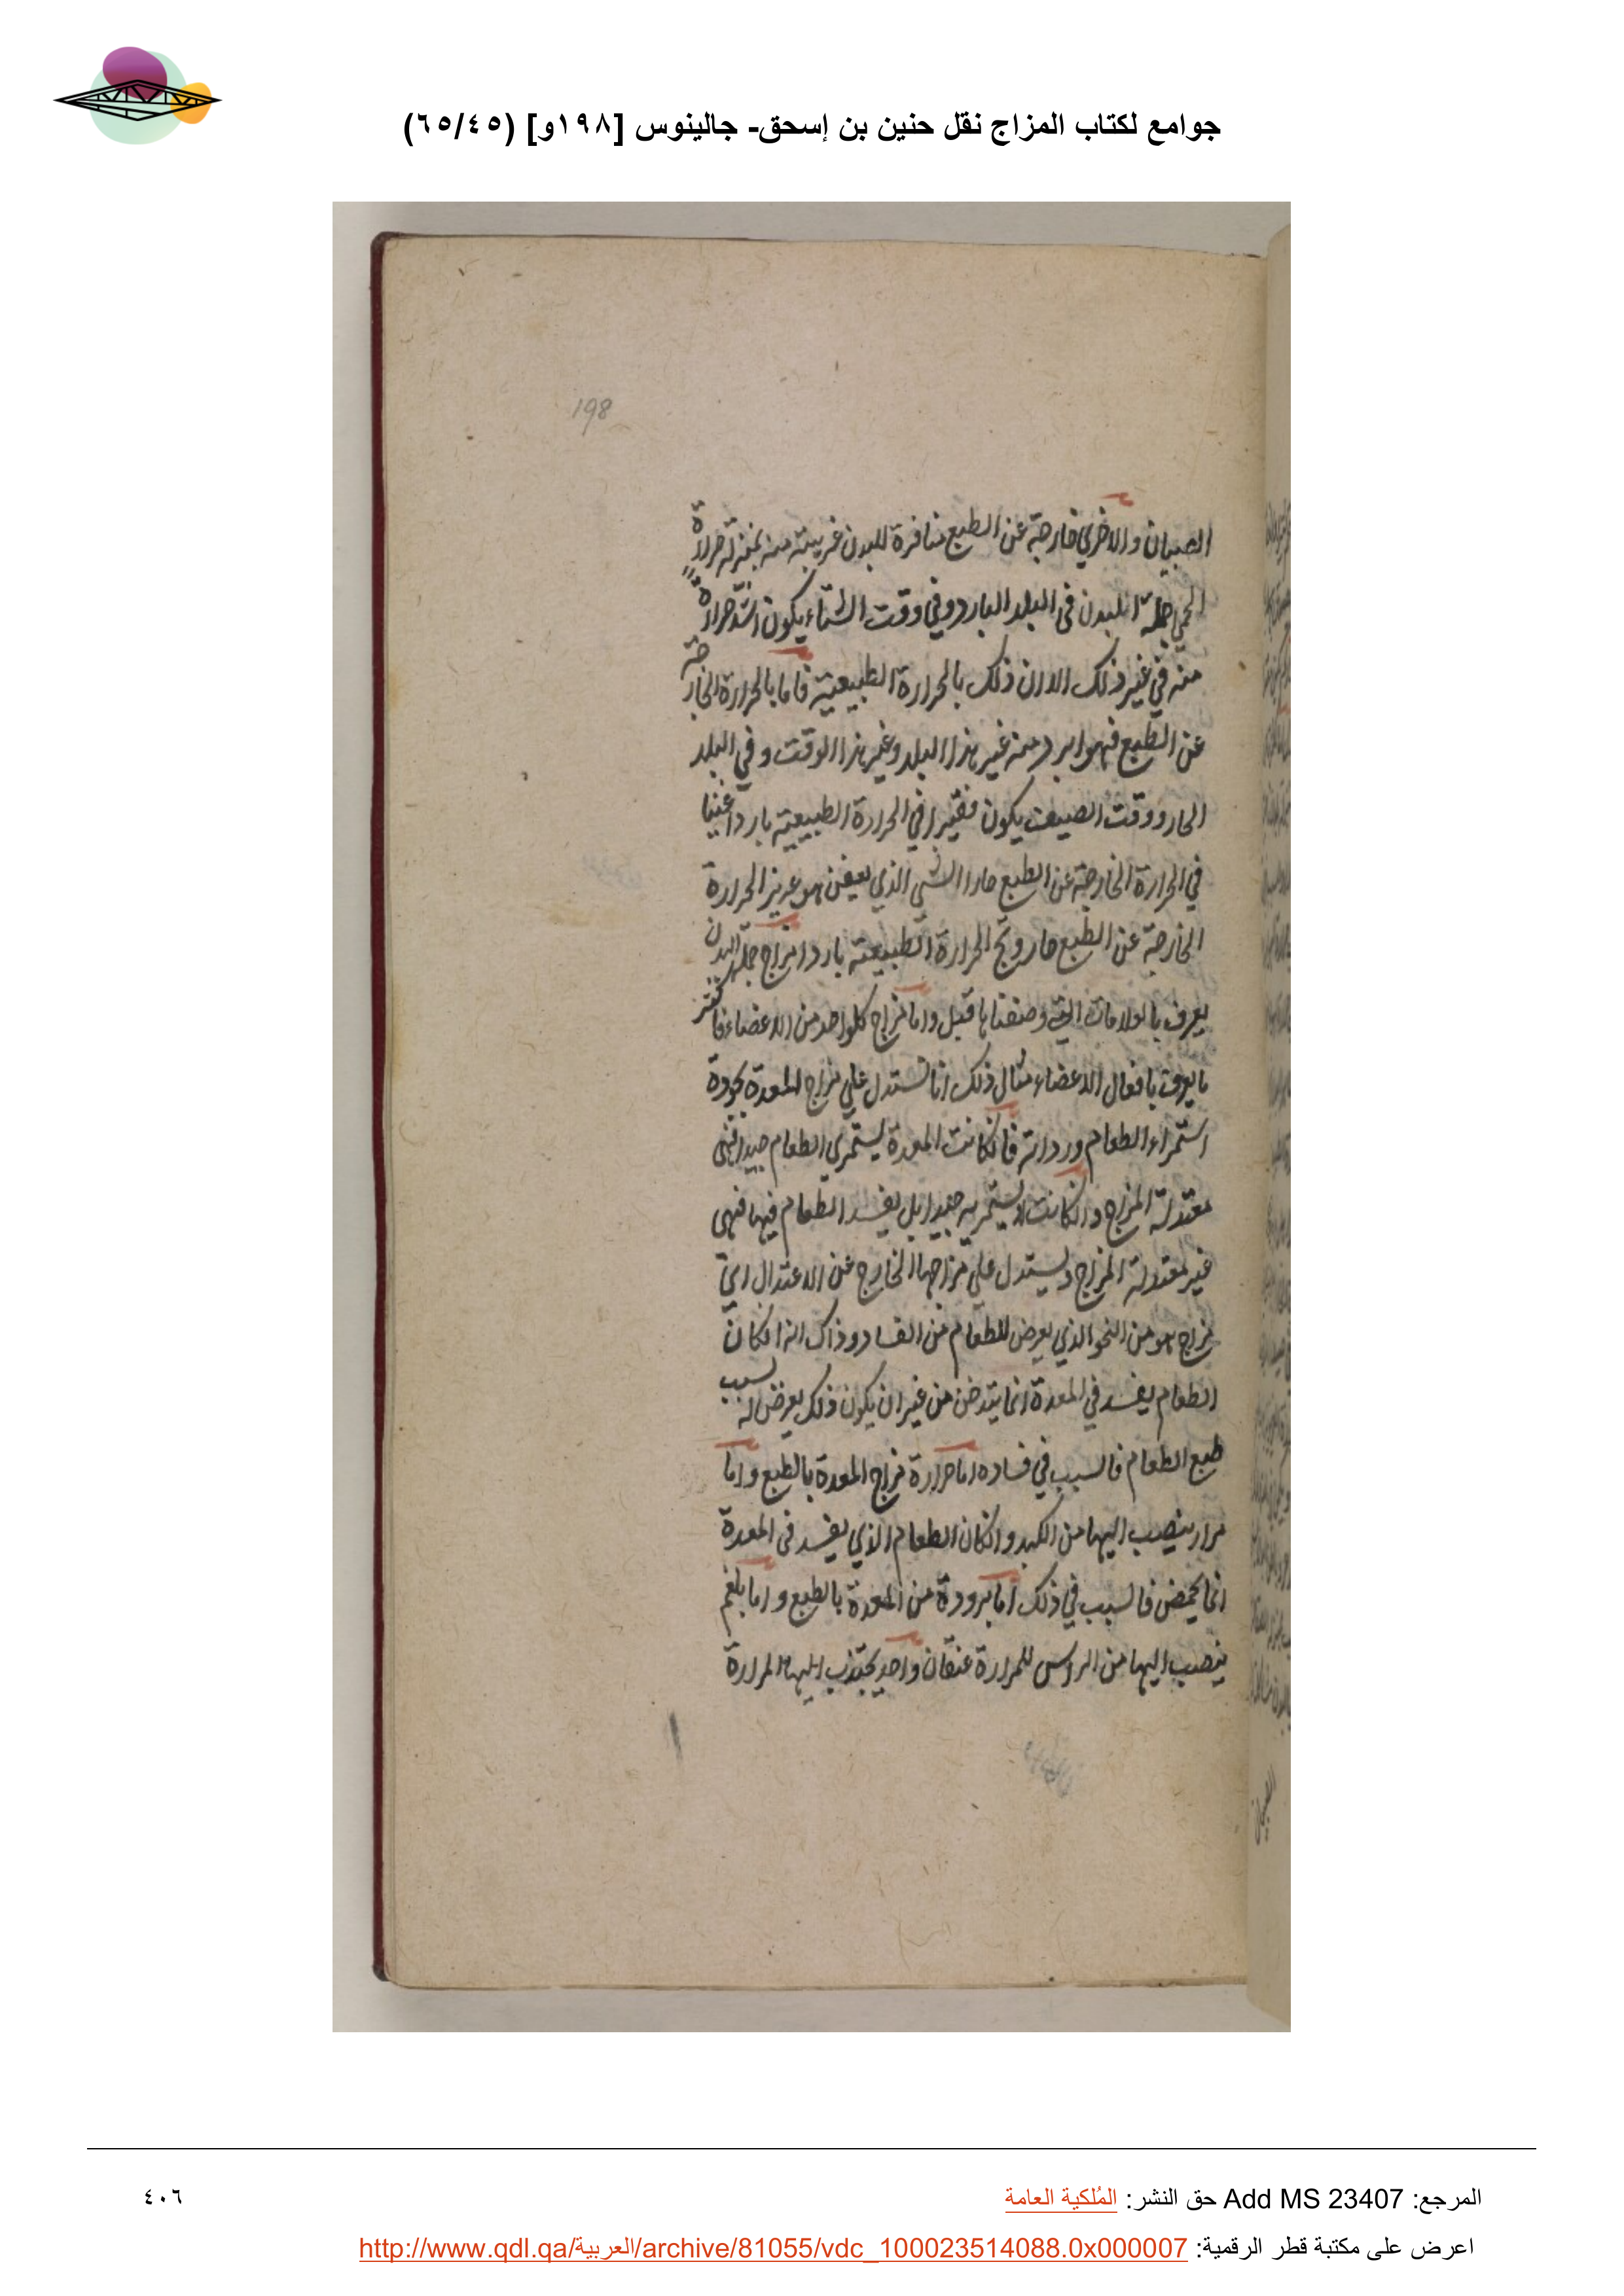 جوامع لكتاب المزاج نقل حنين بن إسحق- جالينوس [١٩٨و] (٦٥/٤٥)
198
الصبيان والاخري خارجة عن الطبع منافرة للبدن غريبة منه بمنزلة حرارة
الحمي جملة البدن في البلد البارد وفي وقت الشتاء يكون اشد حرارة
منه في غير ذلك الا ان ذلك بالحرارة الطبيعية فاما بالحرارة الخارجة
عن الطبع فهو ابرد منه غير هذا البلد وغير هذا الوقت و في البلد
الحار ووقت الصيف يكون فقيرا في الحرارة الطبيعية باردا غنيا
في الحرارة الخارجة عن الطبع حارا الشي الذي يعفن هو عزيز الحرارة
الخارجة عن الطبع حار و الحرارة الطبيعية بارد مزاج جملة البدن
يعرف بالعلامات التي وصفناها قبل واما مزاج كلواحد من الاعضاء فاكثر
ما يعرف بافعال الاعضاء مثال ذلك انا نستدل علي مزاج المعدة بجودة
استمراء الطعام ورداته فانكانت المعدة يستمري الطعام جيدا فهي
معتدلة المزاج وانكانت لا يستمريه جيدا بل يفسد الطعام فيها فهي
غير معتدلة المزاج ويستدل علي مزاجها الخارج عن الاعتدال اي
مزاج هو من النحو الذي يعرض للطعام من الفساد وذاك انه انكان
الطعام يفسد في المعدة انما يتدخن من غير ان يكون ذلك يعرض له لسبب
طبع الطعام فالسبب في فساده اما حرارة مزاج المعدة بالطبع واما
مرار ينصب اليها من الكبد وانكان الطعام الذي يفسد في المعدة
انما يحمض فالسبب في ذلك اما برودة من المعدة بالطبع واما بلغم
ينصب اليها من الراس للمرارة عنقان واحد يجتذب اليها المرارة
المرجع: Add MS 23407 حق النشر: المُلكية العامة
٤٠٦
اعرض على مكتبة قطر الرقمية: http://www.qdl.qa/العربية/archive/81055/vdc_100023514088.0x000007